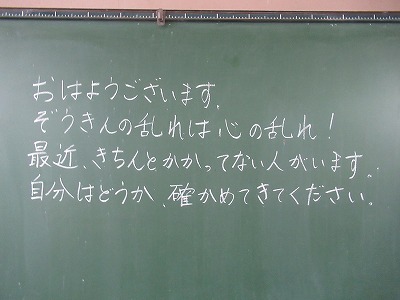 おはようございます。
ぞうきんの乱れは心の乱れ！
最近、きちんとかかってない人がいます。
自分はどうか、確かめてきてください。